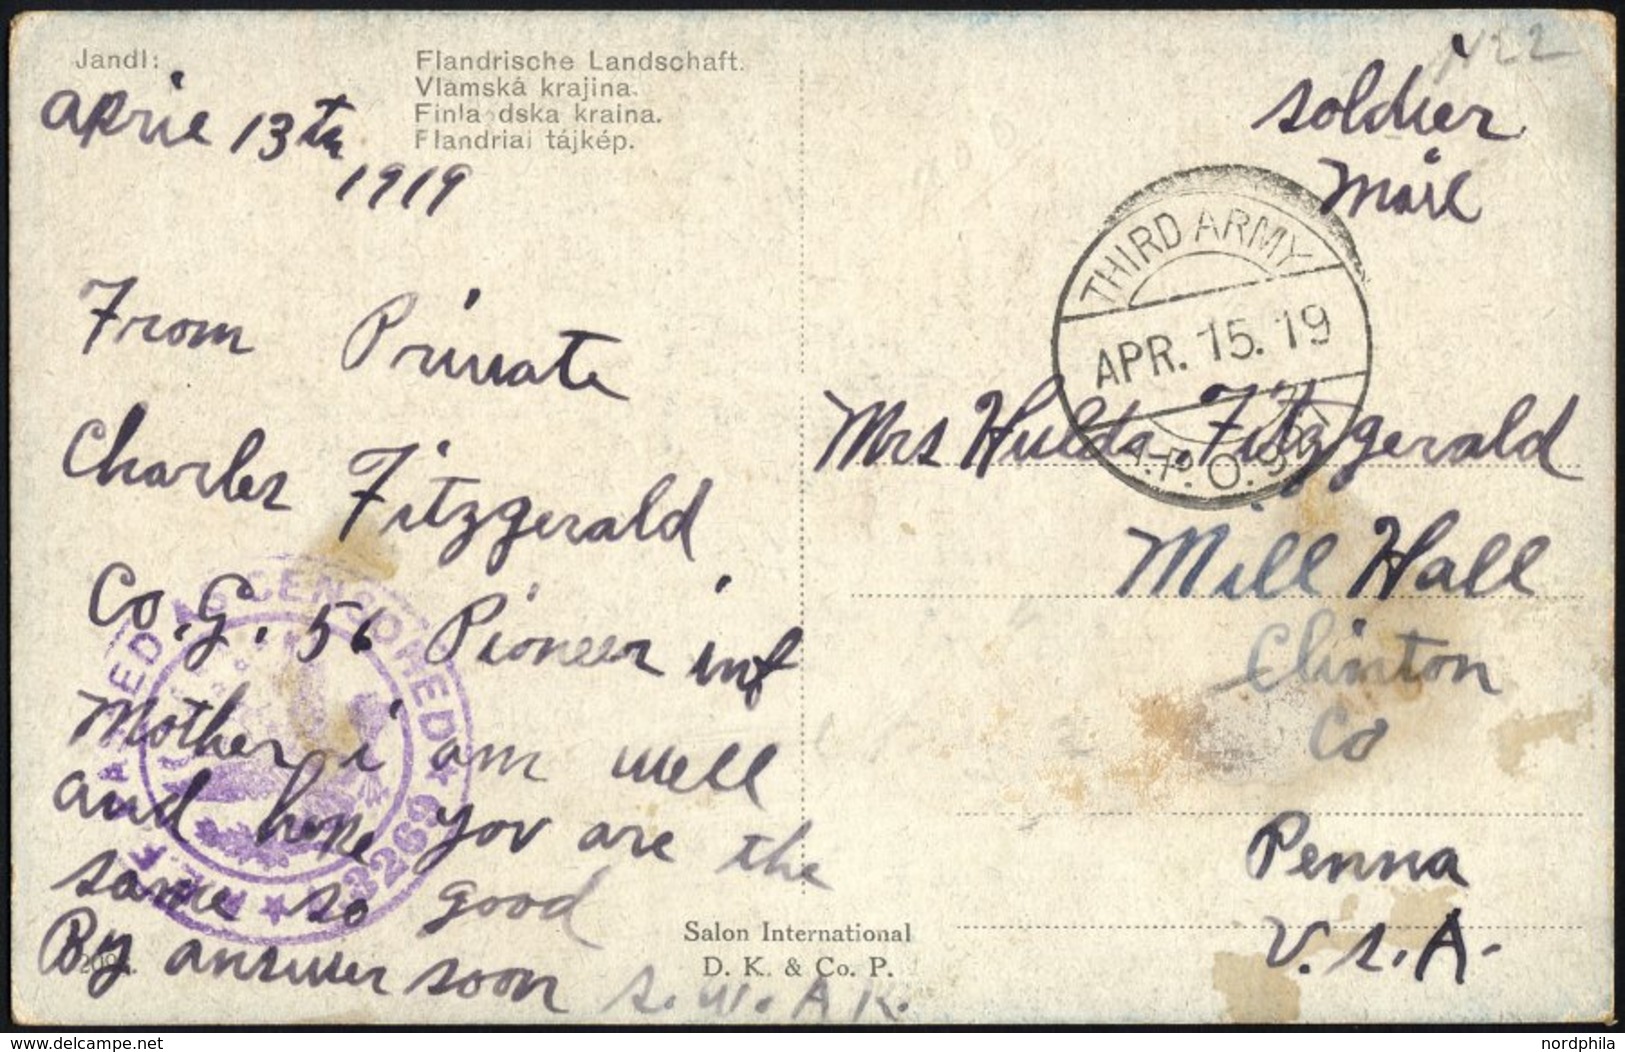 Jandl:
Flandrische Landschaft.
Vlámská krajina.
Finla dska kraina.
Flandriai tájkép.
aprie 13th
1919
From Private
Charles Fitzgerald
Co. G. 56 Pioneer inf
Mother i am well
and hope yov are the
same so good
By answer soon
s. W. A K.
A.E.F. PASSED AS CENSORED
3269
Salon International
D. K. & Co. P.
N22
soldier
Mail
THIRD ARMY
APR. 15. 19
A.P.O.
Mrs Hulda Fitzgerald
Mill Hall
Clinton
Co
Penna
V.s.A.
delcampe.net
nordphila